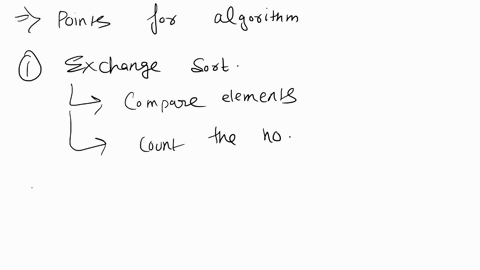 ⇒ Points for algorithm
① Exchange Sort.
↳ Compare elements
↳ Count the no.